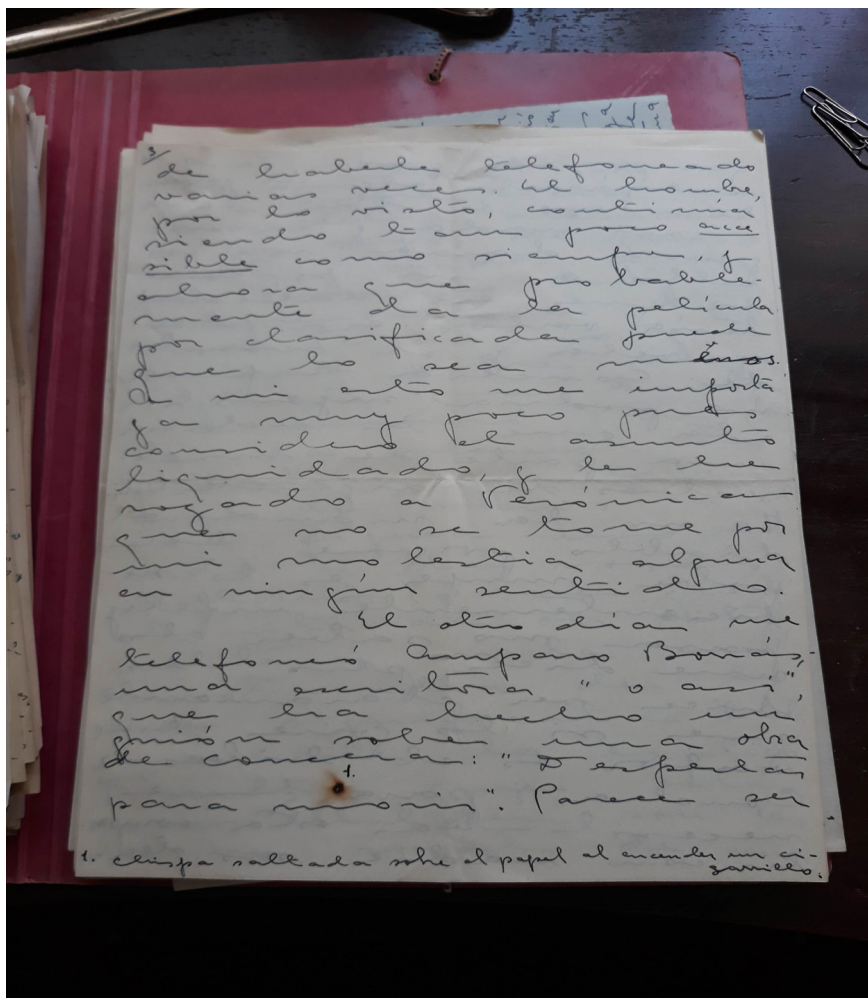 3/
de haberle telefoneado
varias veces. El hombre,
por lo visto, continúa
siendo tan poco acce
sible como siempre, y
ahora que probable-
mente da la película
por clasificada puede
que lo sea menos.
A mi esto me importa
ya muy poco pues
considero el asunto
liquidado, y le he
rogado a Verónica
que no se tome por
mi molestia alguna
en ningún sentido.
El otro día me
telefoneó Amparo
una escritora "o así",
que ha hecho un
guión sobre una obra
de concara: "Despertar
1.
para morir". Parece ser
1. chispa saltada sobre el papel al encender un ci-
garrillo.